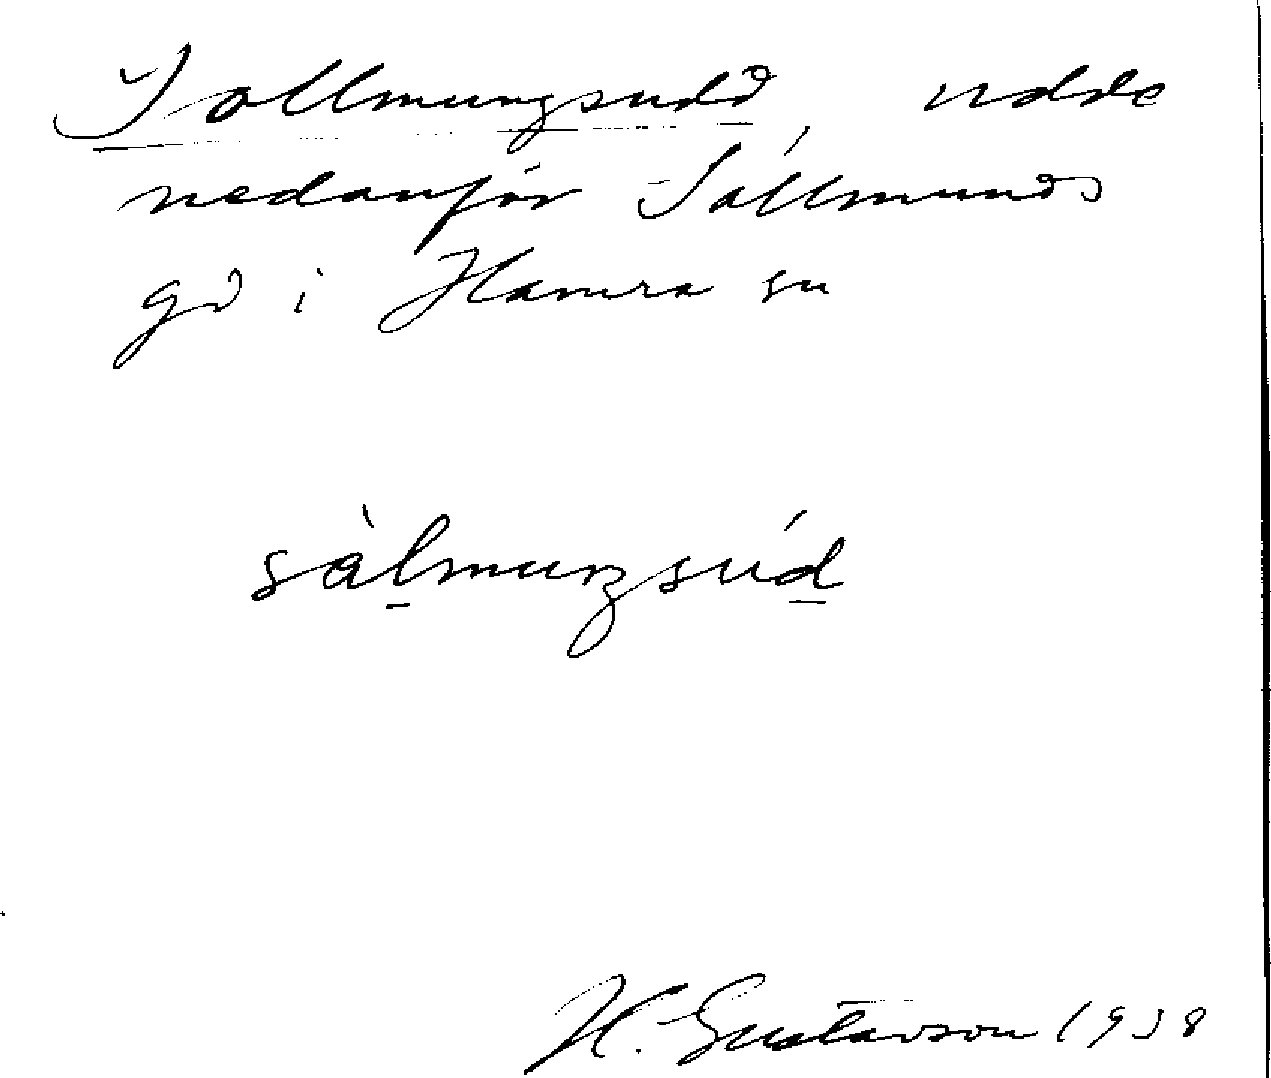 Sallmungsudd, udde
nedanför Sallmunds
gd i Hamra sn
sàlmuŋsúd
H. Gustavson 1938